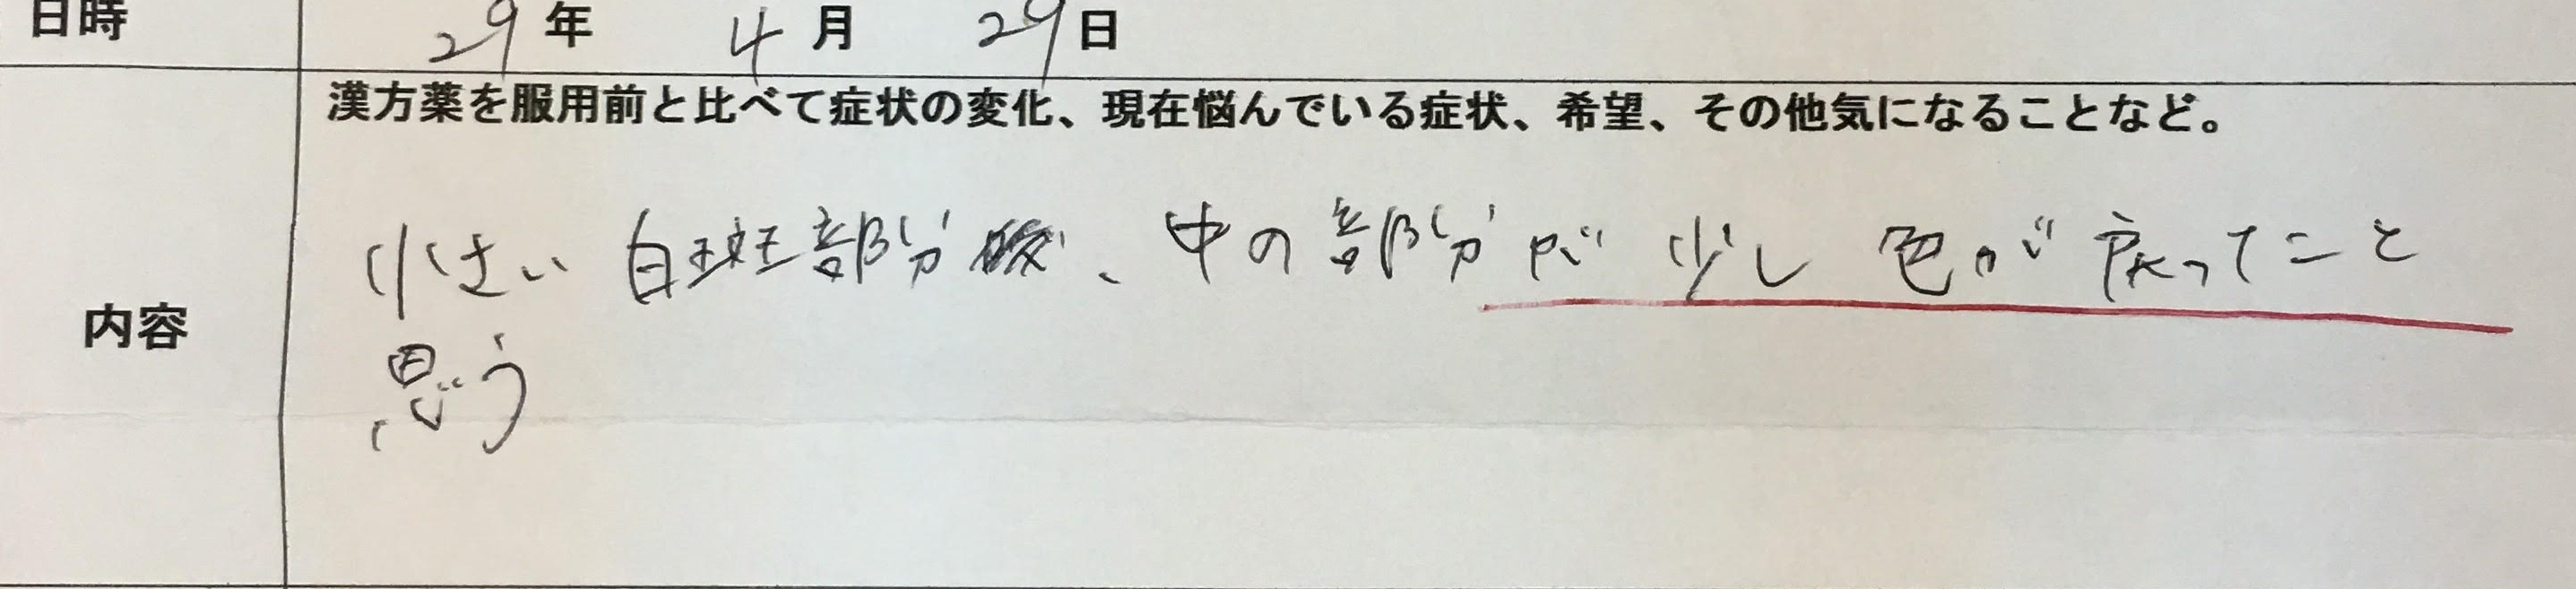 日時 29年 4月 29日
漢方薬を服用前と比べて症状の変化、現在悩んでいる症状、希望、その他気になることなど。
内容
小さい 白斑部分、中の部分が 少し 色が 戻ってこと
思う